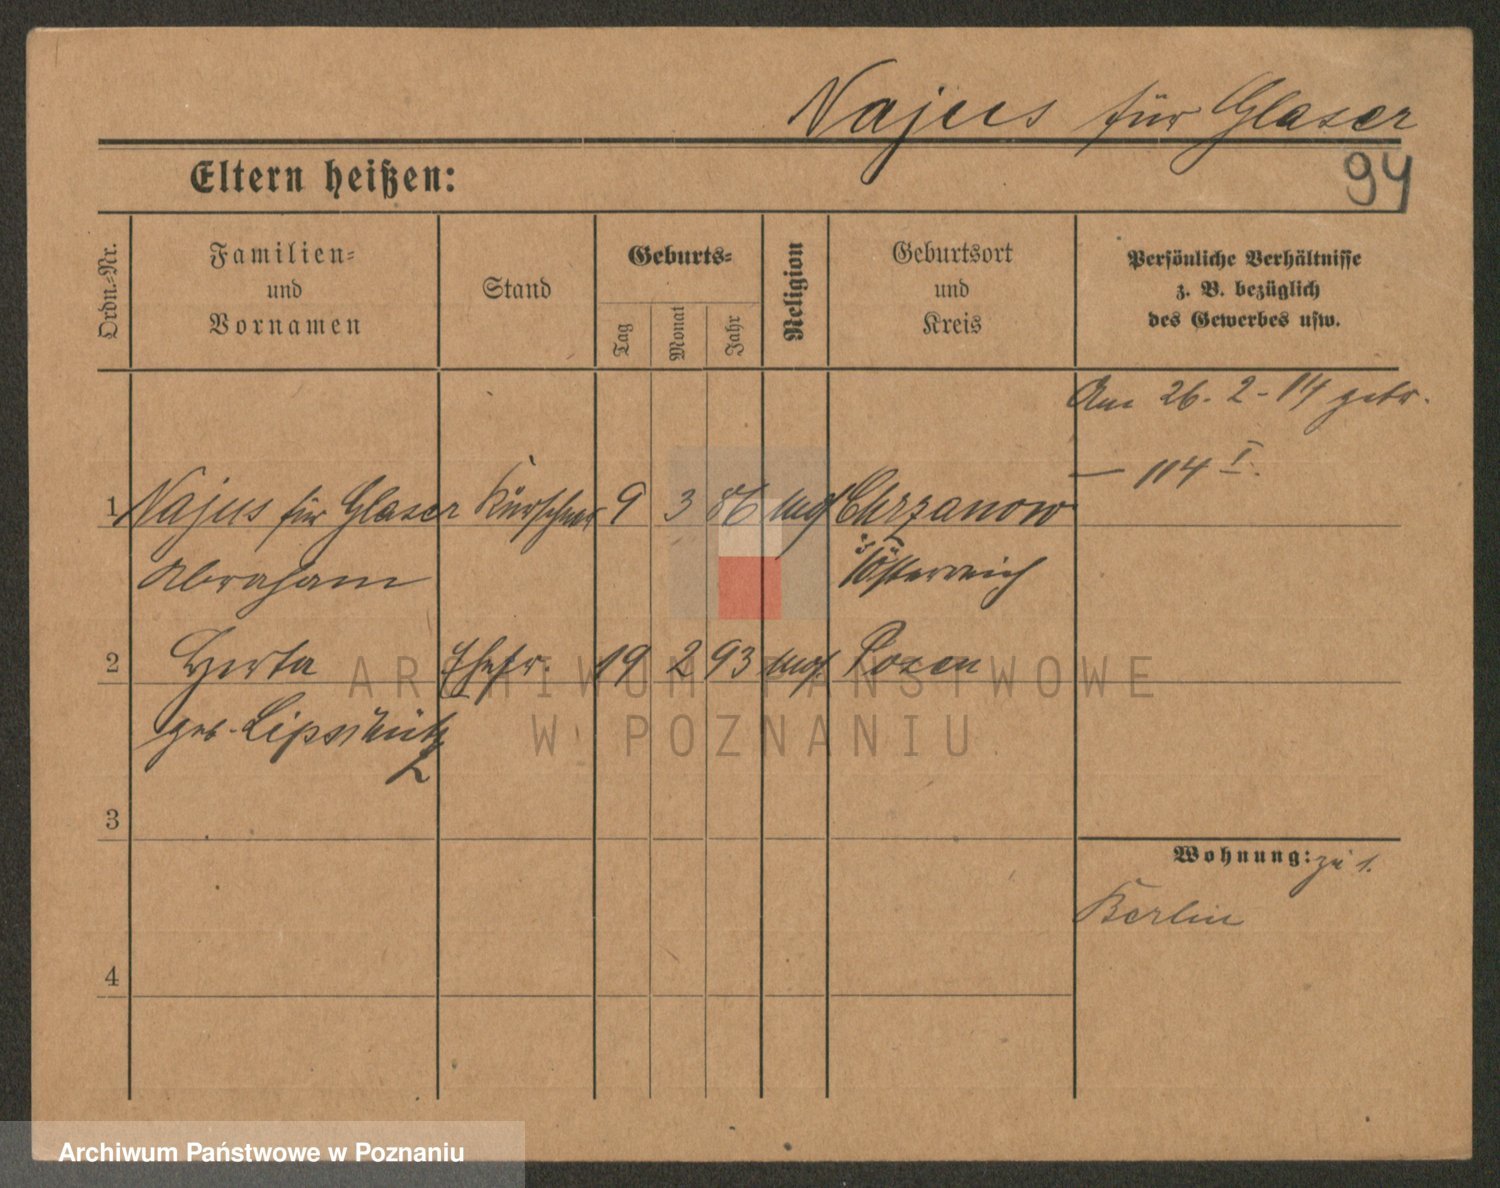 Najus für Glaser
94
Eltern heißen:
Ordn.-Nr.
Familien-
und
Vornamen
Stand
Geburts-
Tag
Monat
Jahr
Religion
Geburtsort
und
Kreis
Persönliche Verhältnisse
z. B. bezüglich
des Gewerbes usw.
Am 26. 2. 14 getr.
— 114 I.
1 Najus für Glaser Kürschner 9 3 86 mos Chrzanow
Abraham Österreich
2 Herta Ehefr. 19 2 93 mos. Posen
geb. Lipschütz
3
Wohnung: zu 1.
Berlin
4
ARCHIWUM PAŃSTWOWE
W POZNANIU
Archiwum Państwowe w Poznaniu